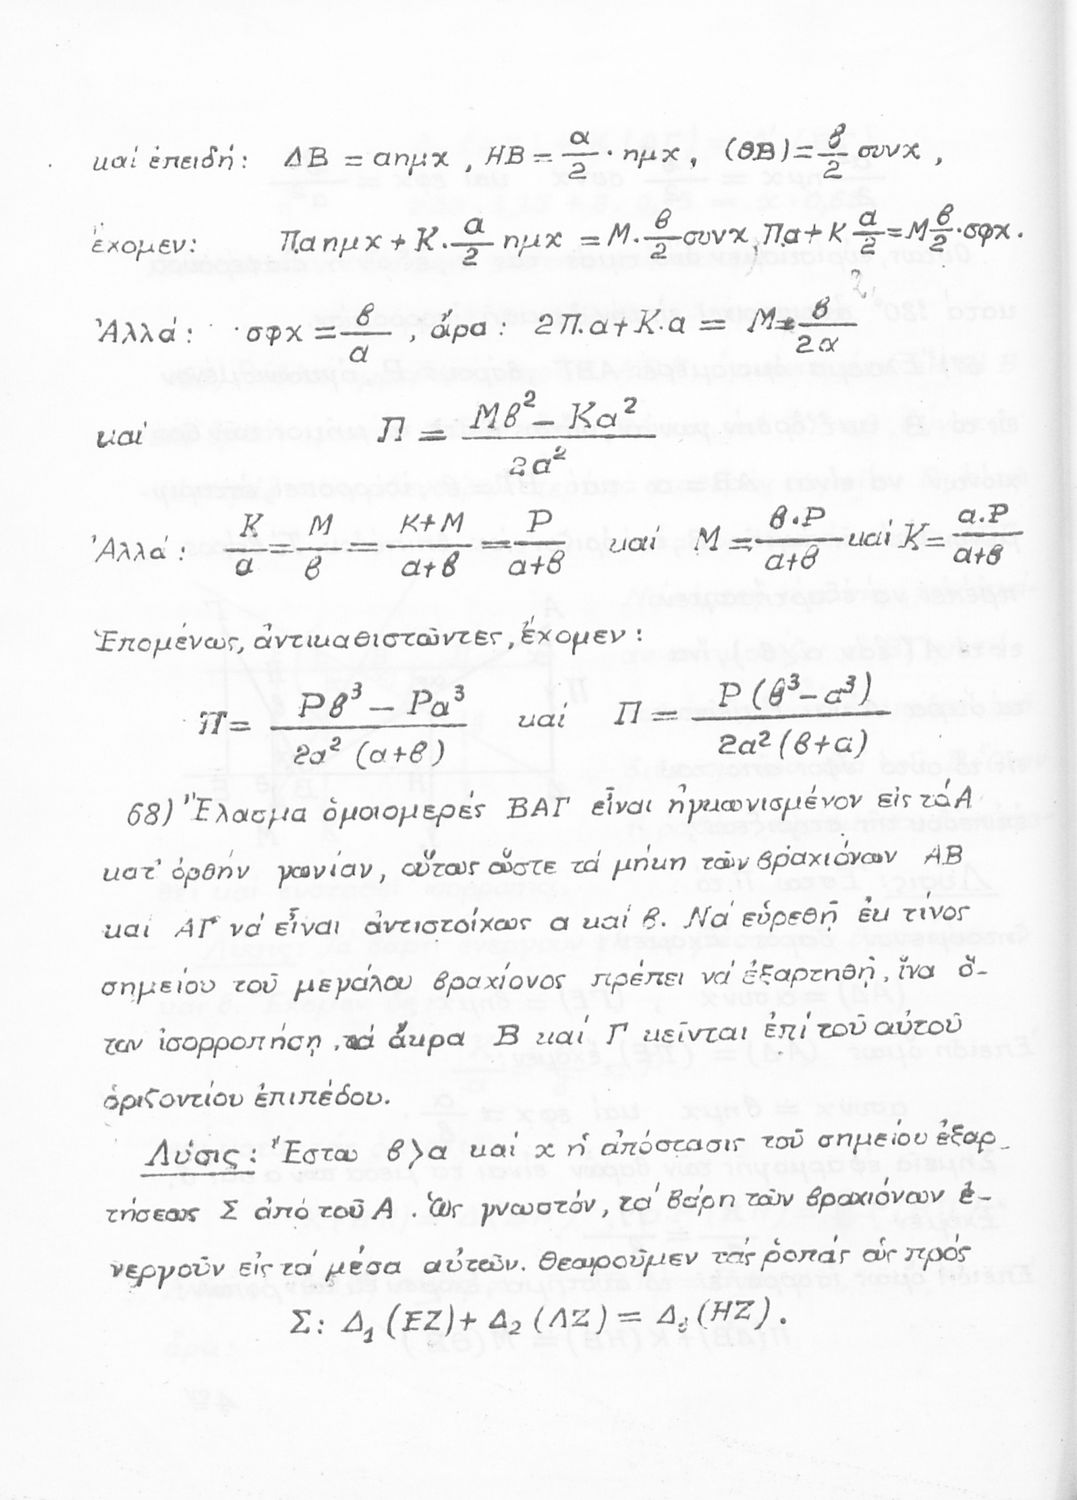 καί ἐπειδή: ΔΒ = αημχ , ΗΒ = α/2 · ημχ , (ΘΒ) = β/2 συνχ ,
ἔχομεν: Παημχ + Κ · α/2 ημχ = Μ · β/2 συνχ , Πα + Κ α/2 = Μ β/2 · σφχ .
Ἀλλά: σφχ = β/α , ἄρα: 2Π.α + Κ.α = Μ β/2α
καί Π = Μβ² - Κα² / 2α²
Ἀλλά: Κ/α = Μ/β = Κ+Μ/α+β = Ρ/α+β καί Μ = β·Ρ/α+β καί Κ = α.Ρ/α+β
Ἑπομένως, ἀντικαθιστῶντες, ἔχομεν:
Π = Ρβ³ - Ρα³ / 2α² (α+β) καί Π = Ρ (β³ - α³) / 2α² (β+α)
68) Ἔλασμα ὁμοιομερές ΒΑΓ εἶναι ἠγκωνισμένον εἰς τά Α
κατ' ὀρθήν γωνίαν, οὕτως ὥστε τά μήκη τῶν βραχιόνων ΑΒ
καί ΑΓ νά εἶναι ἀντιστοίχως α καί β. Νά εὑρεθῇ ἐκ τίνος
σημείου τοῦ μεγάλου βραχίονος πρέπει νά ἐξαρτηθῇ, ἵνα ὅ-
ταν ἰσορροπήσῃ , τά ἄκρα Β καί Γ κεῖνται ἐπί τοῦ αὐτοῦ
ὁριζοντίου ἐπιπέδου.
Λύσις: Ἔστω β>α καί χ ἡ ἀπόστασις τοῦ σημείου ἐξαρ-
τήσεως Σ ἀπό τοῦ Α . Ὡς γνωστόν, τά βάρη τῶν βραχιόνων ἐ-
νεργοῦν εἰς τά μέσα αὐτῶν. Θεωροῦμεν τάς ῥοπάς ὡς πρός
Σ: Δ₁ (ΕΖ) + Δ₂ (ΛΖ) = Δ₂ (ΗΖ) .